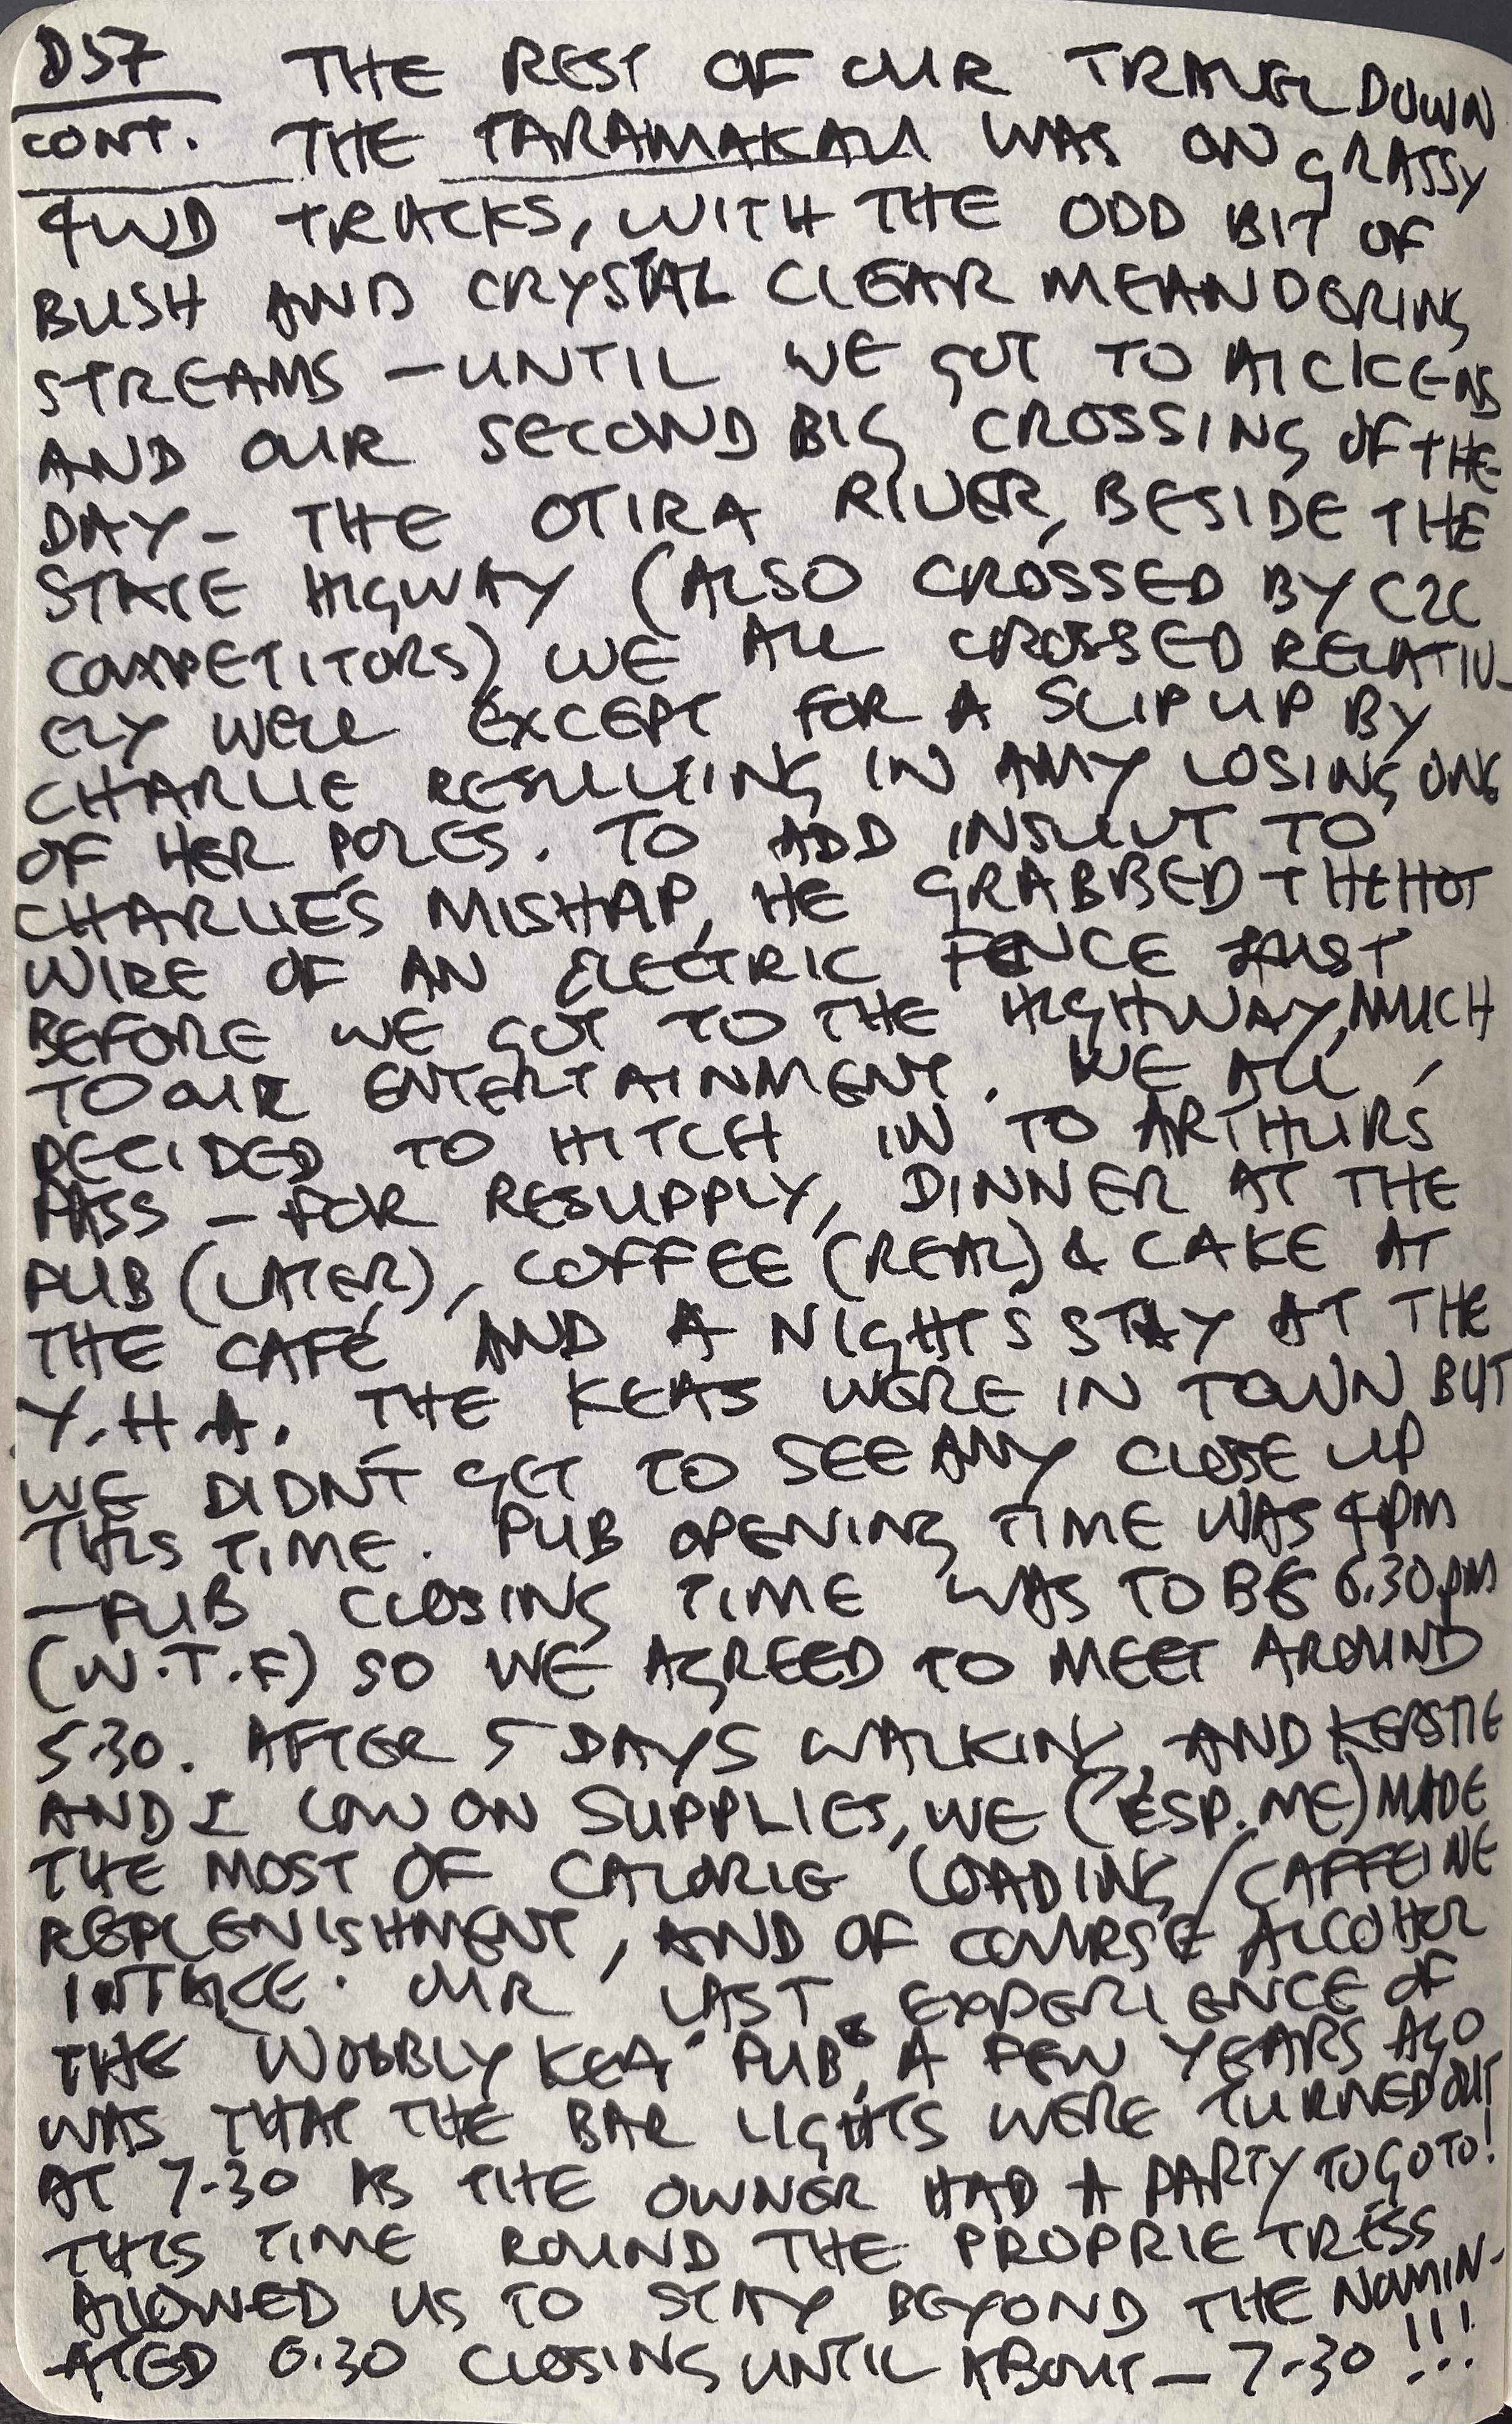 D57 THE REST OF OUR TRAVEL DOWN
CONT. THE TARAMAKAU WAS ON GRASSY
4WD TRACKS, WITH THE ODD BIT OF
BUSH AND CRYSTAL CLEAR MEANDERING
STREAMS - UNTIL WE GOT TO AICKENS
AND OUR SECOND BIG CROSSING OF THE
DAY - THE OTIRA RIVER, BESIDE THE
STATE HIGWAY (ALSO CROSSED BY C2C
COMPETITORS) WE ALL CROSSED RELATIV-
ELY WELL EXCEPT FOR A SLIP UP BY
CHARLIE RESULTING IN AMY LOSING ONE
OF HER POLES. TO ADD INSULT TO
CHARLIE'S MISHAP, HE GRABBED THE HOT
WIRE OF AN ELECTRIC FENCE JUST
BEFORE WE GOT TO THE HIGHWAY, MUCH
TO OUR ENTERTAINMENT. WE ALL
DECIDED TO HITCH IN TO ARTHURS
PASS - FOR RESUPPLY, DINNER AT THE
PUB (LATER), COFFEE (REAL) & CAKE AT
THE CAFÉ AND A NIGHT'S STAY AT THE
Y.H.A. THE KEAS WERE IN TOWN BUT
WE DIDN'T GET TO SEE ANY CLOSE UP
THIS TIME. PUB OPENING TIME WAS 4PM
- PUB CLOSING TIME WAS TO BE 6.30PM
(W.T.F) SO WE AGREED TO MEET AROUND
5.30. AFTER 5 DAYS WALKING, AND KERSTIE
AND I LOW ON SUPPLIES, WE (ESP. ME) MADE
THE MOST OF CALORIE LOADING / CAFFEINE
REPLENISHMENT, AND OF COURSE ALCOHOL
INTAKE. OUR LAST EXPERIENCE OF
THE "WOBBLY KEA" PUB, A FEW YEARS AGO
WAS THAT THE BAR LIGHTS WERE TURNED OUT
AT 7-30 AS THE OWNER HAD A PARTY TO GO TO!
THIS TIME ROUND THE PROPRIETRESS
ALLOWED US TO STAY BEYOND THE NOMIN-
ATED 6.30 CLOSING UNTIL ABOUT - 7-30 !!!